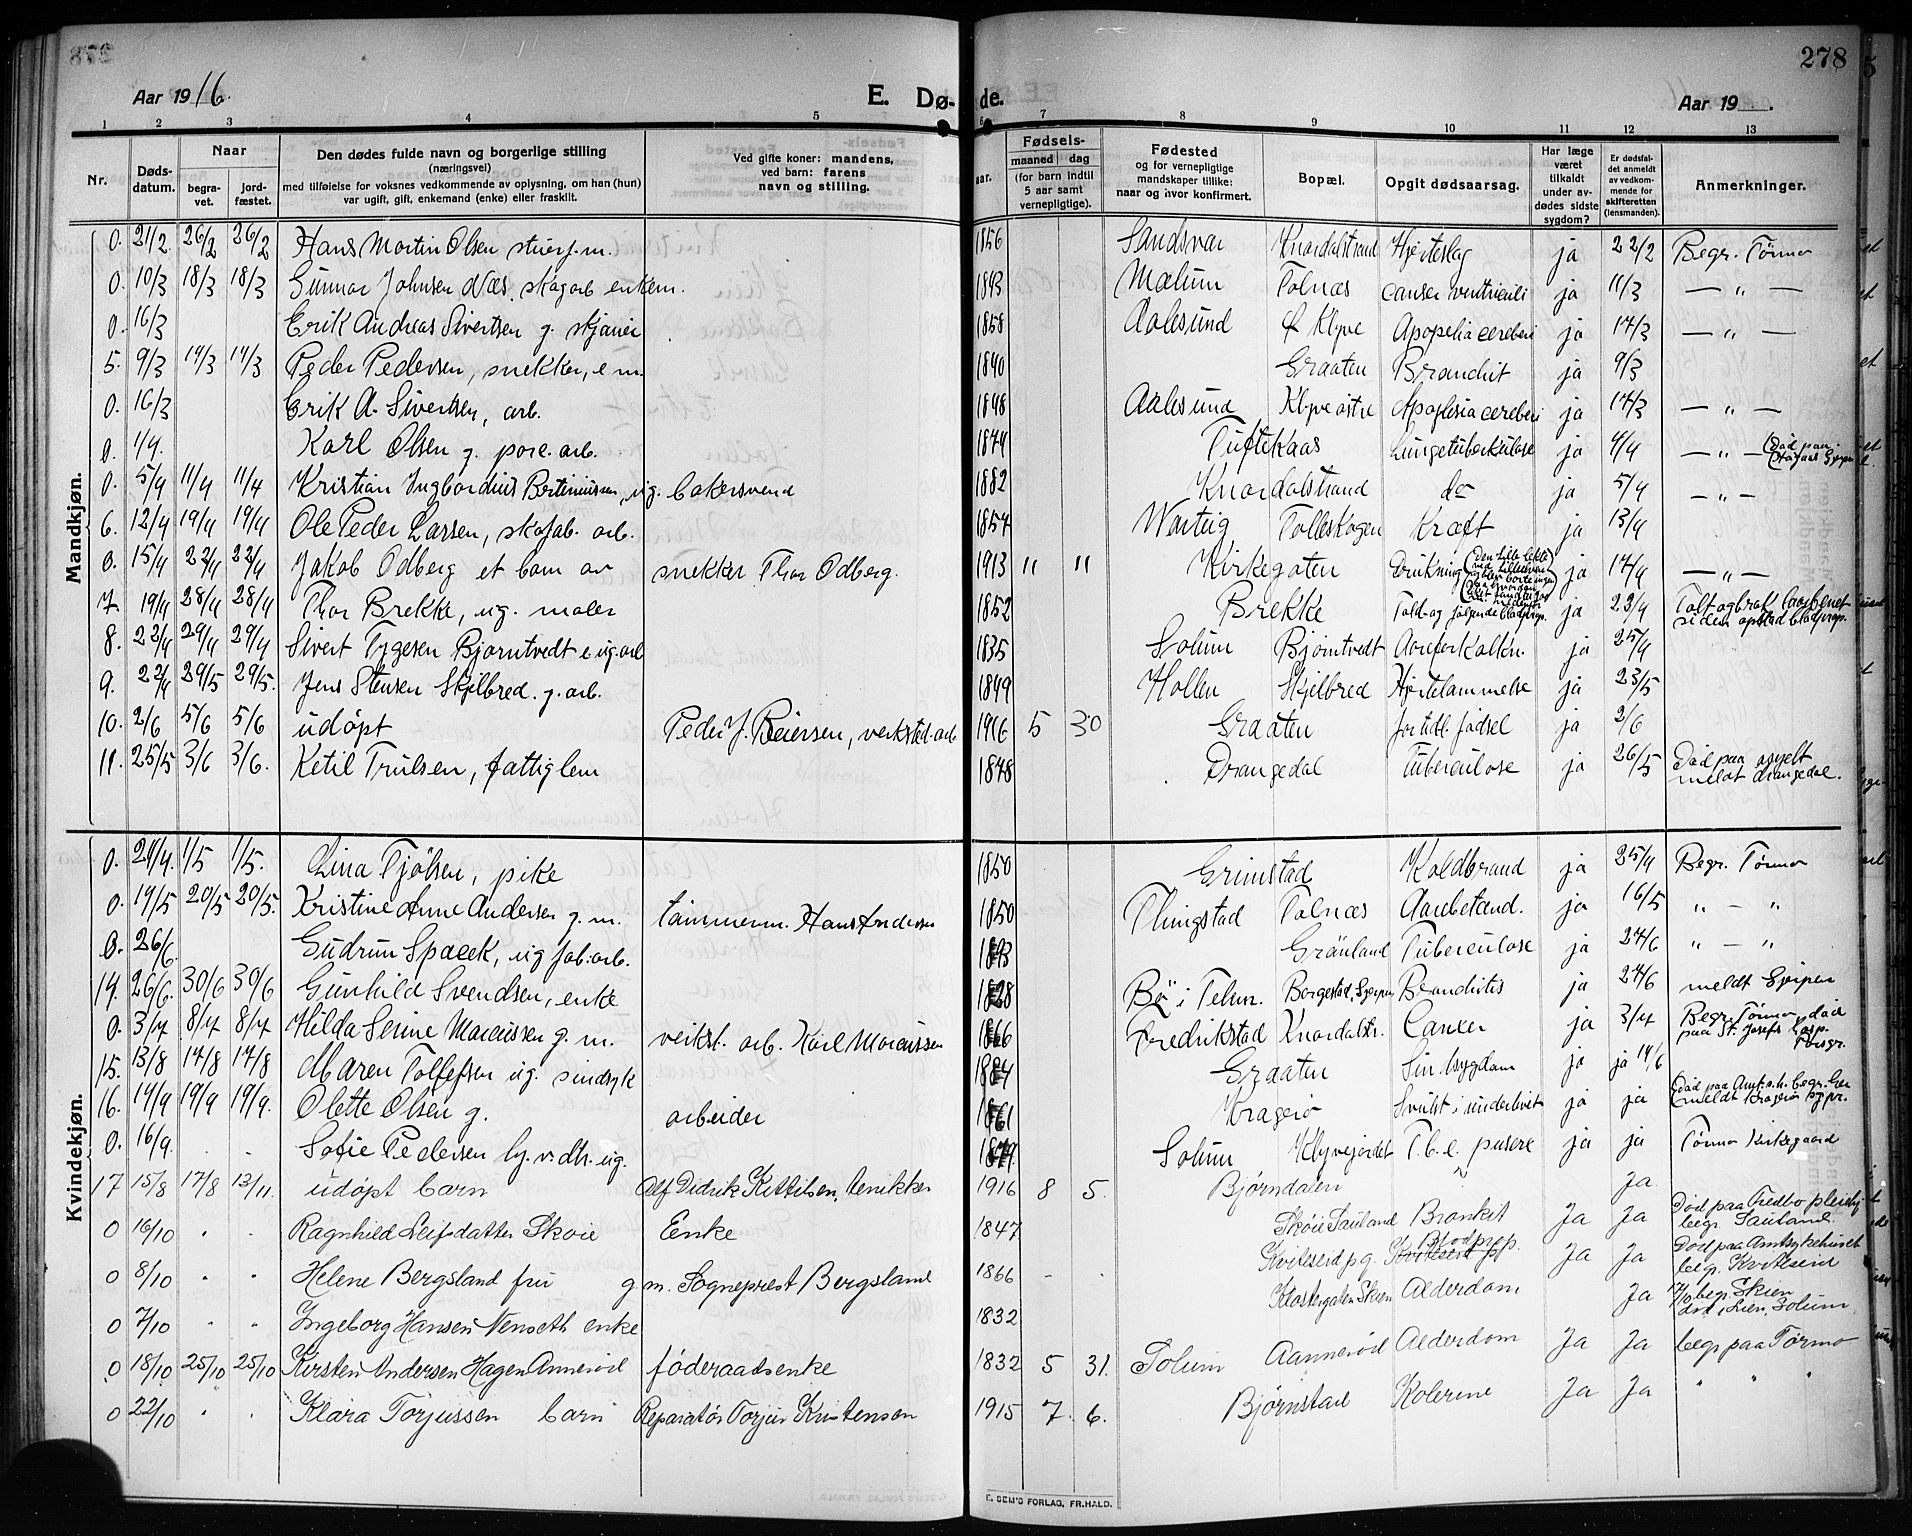 278
Aar 1916.
E. Dø-
de.
Aar 19 .
1 2 3 4 5 6 7 8 9 10 11 12 13
Nr. Døds-datum. Naar begra-vet. jord-fæstet. Den dødes fulde navn og borgerlige stilling (næringsvei) med tilføielse for voksnes vedkommende av oplysning, om han (hun) var ugift, gift, enkemand (enke) eller fraskilt. Ved gifte koner: mandens, ved barn: farens navn og stilling. aar. Fødsels- maaned dag (for barn indtil 5 aar samt vernepligtige). Fødested og for vernepligtige mandskaper tillike: naar og hvor konfirmert. Bopæl. Opgit dødsaarsag. Har læge været tilkaldt under av-dødes sidste sygdom? Er dødsfal-det anmeldt av vedkom-mende for skifteretten (lensmanden). Anmerkninger.
Mandkjøn.
0. 21/2 26/2 26/2 Hans Martin Olsen stuerf. m. 1856 Sandsvær Knardalstrand Hjerteslag ja 22/2 Begr. Tørmo
0. 10/3 18/3 18/3 Gunnar Johnsen Næs, skogarb enkem. 1843 Mælum Tolnæs cancer ventriculi ja 11/3 — " —
0. 16/3 Erik Andreas Sivertsen g. 1858 Aalesund Ø Klyve Apopelia cereberi ja 17/3 — " —
5. 9/3 14/3 14/3 Peder Pedersen, snekker, e m. 1840 Graaten Bronchit ja 9/3
0. 16/3 Erik A. Sivertsen, arb. 1848 Aalesund Klyve østre Apoplesia cereberi ja 17/3 — " —
0. 1/4. Karl Olsen g. porc. arb. 1874 Tuftekaas Lungetuberkulose ja 4/4 — " —
0. 5/4 11/4 11/4 Kristian Ingbordius Bertinussen, ug. bakersvend 1882 Knardalstrand do ja 5/4 — " —
6. 12/4 19/4 19/4 Ole Peder Larssen, skofab. arb. 1854 Warteig Tolleskogen Kræft ja 13/4
0. 15/4 22/4 22/4 Jakob Odberg et barn av snekker Thor Odberg. 1913 " " Kirkegaten Drukning ja 17/4 — " —
7. 19/4 28/4 28/4 Thor Brekke, ug. maler 1852 Brekke Fald og følgende blodprop. ja 23/4 Falt og brak laarbenet siden opstod blodprop.
8. 22/4 29/4 29/4 Sivert Tygesen Bjørntvedt e ug. arb 1835 Solum Bjørntvedt Aareforkalkn. ja 25/4
9. 22/4 29/5 29/5. Jens Stensen Skjilbred. g. arb. 1849 Hollen Skjelbred Hjertelammelse ja 23/5
10. 2/6 5/6 5/6 udøpt Peder J. Beiersen, verksted. arb 1916 5 30 Graaten for tidl. fødsel ja 2/6
11. 25/5 3/6 3/6. Ketil Trulsen, fattiglem 1848 Drangedal Tuberculose ja 26/5 Død paa asyelt meldt drangedal.
Kvindekjøn.
0. 24/4. 1/5 1/5. Lina Tjølsen, pike 1850 Grimstad Koldbrand ja 25/4 Begr. Tørmo
0. 14/5 20/5 20/5. Kristine Anne Andersen g. m. tømmerm. Hans Andersen 1850 Tolnæs Aarebetænd. ja 16/5 " — "
0. 26/6. Gudrun Spacek, ug fab. arb. 1893 Grønland Tuberculose ja 27/6 " — "
14. 26/6. 30/6 30/6 Gunhild Svendsen, enke 1828 Bø i Telem. Borgestad, Gjerpen Bronchitis ja 27/6 meldt Gjerpen
0. 3/7 8/7 8/7 Hilda Serine Marcussen g. m. verkst. arb. Karl Marcussen 1866 Fredrikstad Knardalstr. Cancer ja 3/7 Begr. Tørmo, død paa St. Josefs Hosp. Porsgr.
15. 13/8 17/8 17/8 Maren Tollefsen ug. sindsyk 1884 Graaten Sindsygdom ja ja 14/6
16. 14/9 19/9 19/9. Olette Olsen g. arbeider 1861 Kragerø Svulst i underlivet ja ja
0. 16/9. . . Sofie Pedersen ug. 1879. Solum Klyvejordet T. b. c. ja ja Tørmo Kirkegaard
17 15/8 17/8 13/11. udøpt barn Alf Didrik Kittilsen, 1916 8 5. Bjørndalen Ja
0 16/10 . . Ragnhild Leifsdatter Skoie Enke 1847 Skøie Sauland Bronkit Ja Ja Død paa Fredbo pleiehj begr. Sauland.
0 8/10 . . Helene Bergsland fru g m. Sogneprest Bergsland 1866 . . Kviteseid p g. Blodprop. Ja Ja Død paa Amtsykehuset begr. Kviteseid
0 7/10 . . Ingeborg Hansen Venseth enke 1832 Klostergaten Skien Alderdom Ja begr. Skien
0 18/10 25/10 25/10 Kirsten Andersen Hagen Annerød føderaadsenke 1832 5 31. Solum Aannerød Alderdom Ja Ja begr paa Tørmo
0 22/10 . . Klara Torjussen barn Reparatør Torjus Kristensen 1915 7. 6. Bjørnstad Kolerine Ja Ja " " "
E. SEM'S FORLAG, FR.HALD.